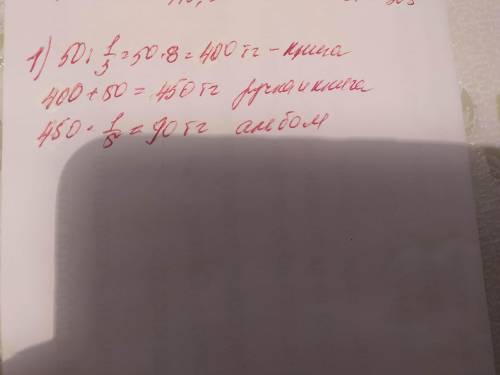 1) 50 : 1/8 = 50 · 8 = 400 тг - книга
400 + 50 = 450 тг ручка и книга
450 · 1/5 = 90 тг альбом